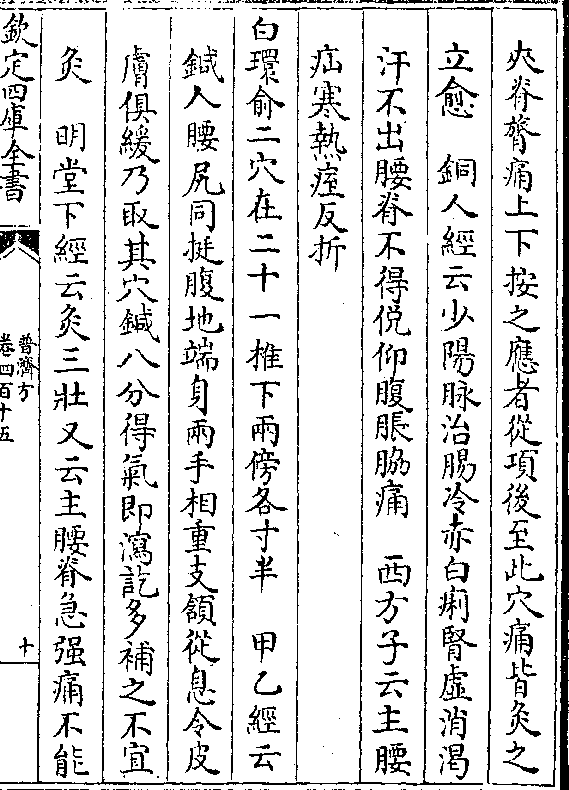 夾脊膂痛上下按之應者從項後至此穴痛皆灸之
立愈　銅人經云少陽脉治腸冷赤白痢腎虛消渴
汗不出腰脊不得俛仰腹脹脇痛　西方子云主腰
疝寒熱痓反折
白環俞二穴在二十一椎下兩傍各寸半　甲乙經云
鍼人腰尻同挺腹地端身兩手相重支頟從息令皮
膚俱緩乃取其穴鍼八分得氣即瀉訖多補之不宜
灸　明堂下經云灸三壯又云主腰脊急强痛不能
欽定四庫全書
普濟方
卷四百十五
十